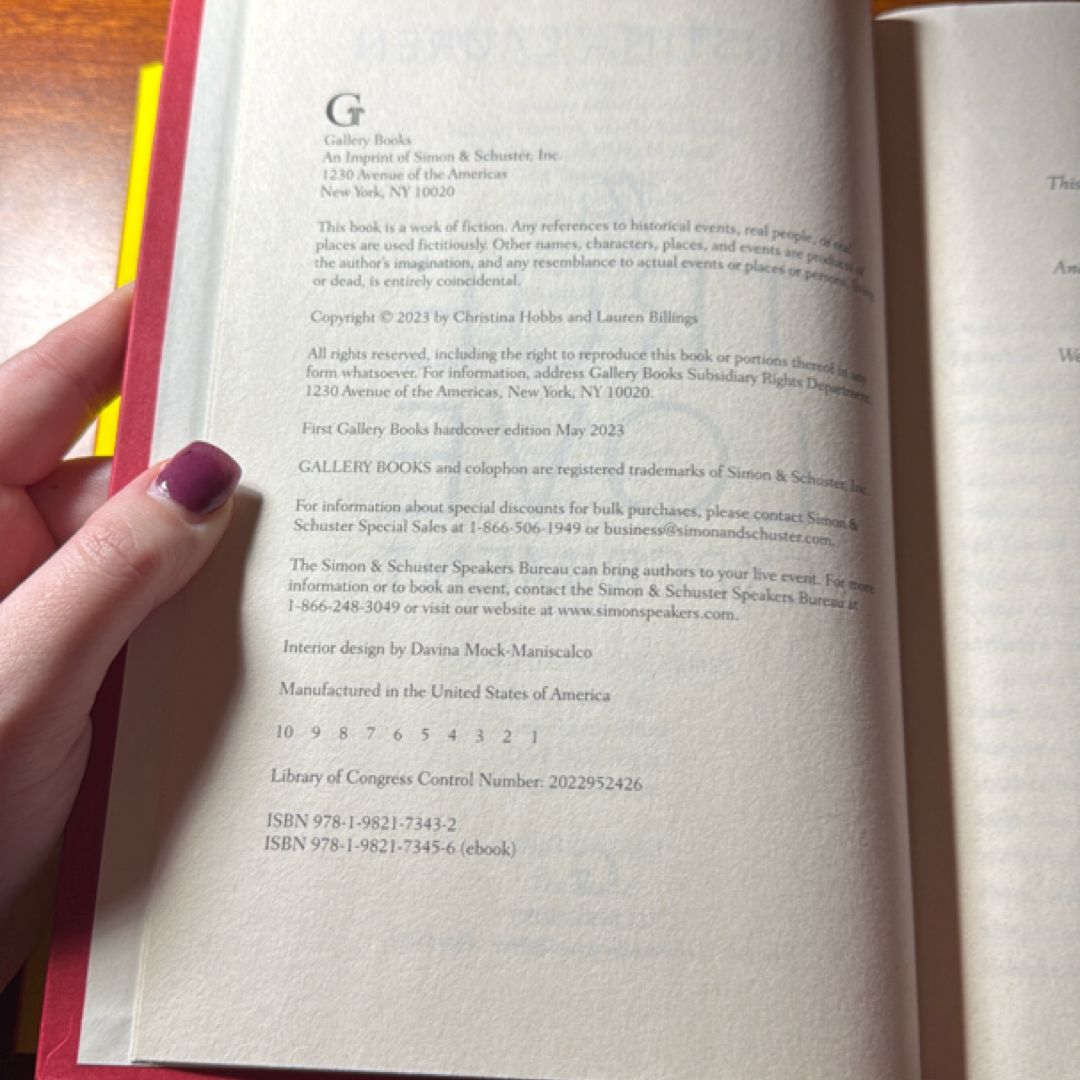 G
Gallery Books
An Imprint of Simon & Schuster, Inc.
1230 Avenue of the Americas
New York, NY 10020
This book is a work of fiction. Any references to historical events, real people, or real
places are used fictitiously. Other names, characters, places, and events are products of
the author's imagination, and any resemblance to actual events or places or persons, living
or dead, is entirely coincidental.
Copyright © 2023 by Christina Hobbs and Lauren Billings
All rights reserved, including the right to reproduce this book or portions thereof in any
form whatsoever. For information, address Gallery Books Subsidiary Rights Department,
1230 Avenue of the Americas, New York, NY 10020.
First Gallery Books hardcover edition May 2023
GALLERY BOOKS and colophon are registered trademarks of Simon & Schuster, Inc.
For information about special discounts for bulk purchases, please contact Simon &
Schuster Special Sales at 1-866-506-1949 or business@simonandschuster.com.
The Simon & Schuster Speakers Bureau can bring authors to your live event. For more
information or to book an event, contact the Simon & Schuster Speakers Bureau at
1-866-248-3049 or visit our website at www.simonspeakers.com.
Interior design by Davina Mock-Maniscalco
Manufactured in the United States of America
10 9 8 7 6 5 4 3 2 1
Library of Congress Control Number: 2022952426
ISBN 978-1-9821-7343-2
ISBN 978-1-9821-7345-6 (ebook)
This